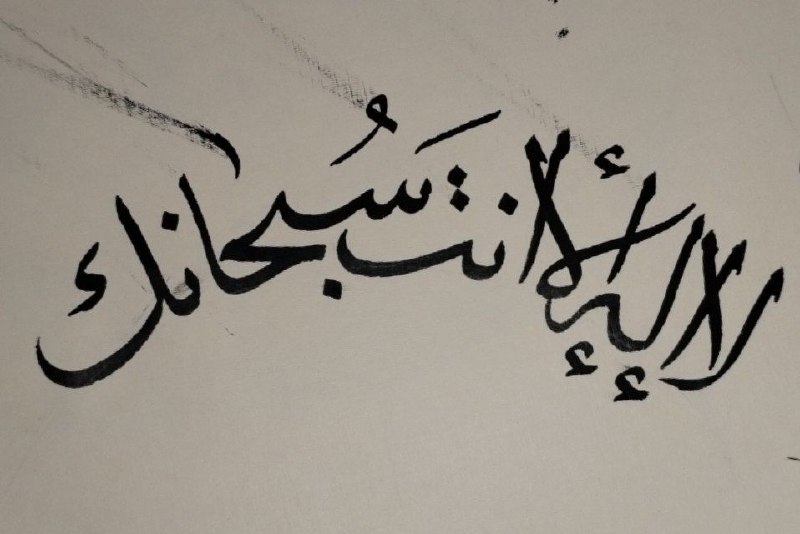 لا إله إلا أنتَ سُبحانك